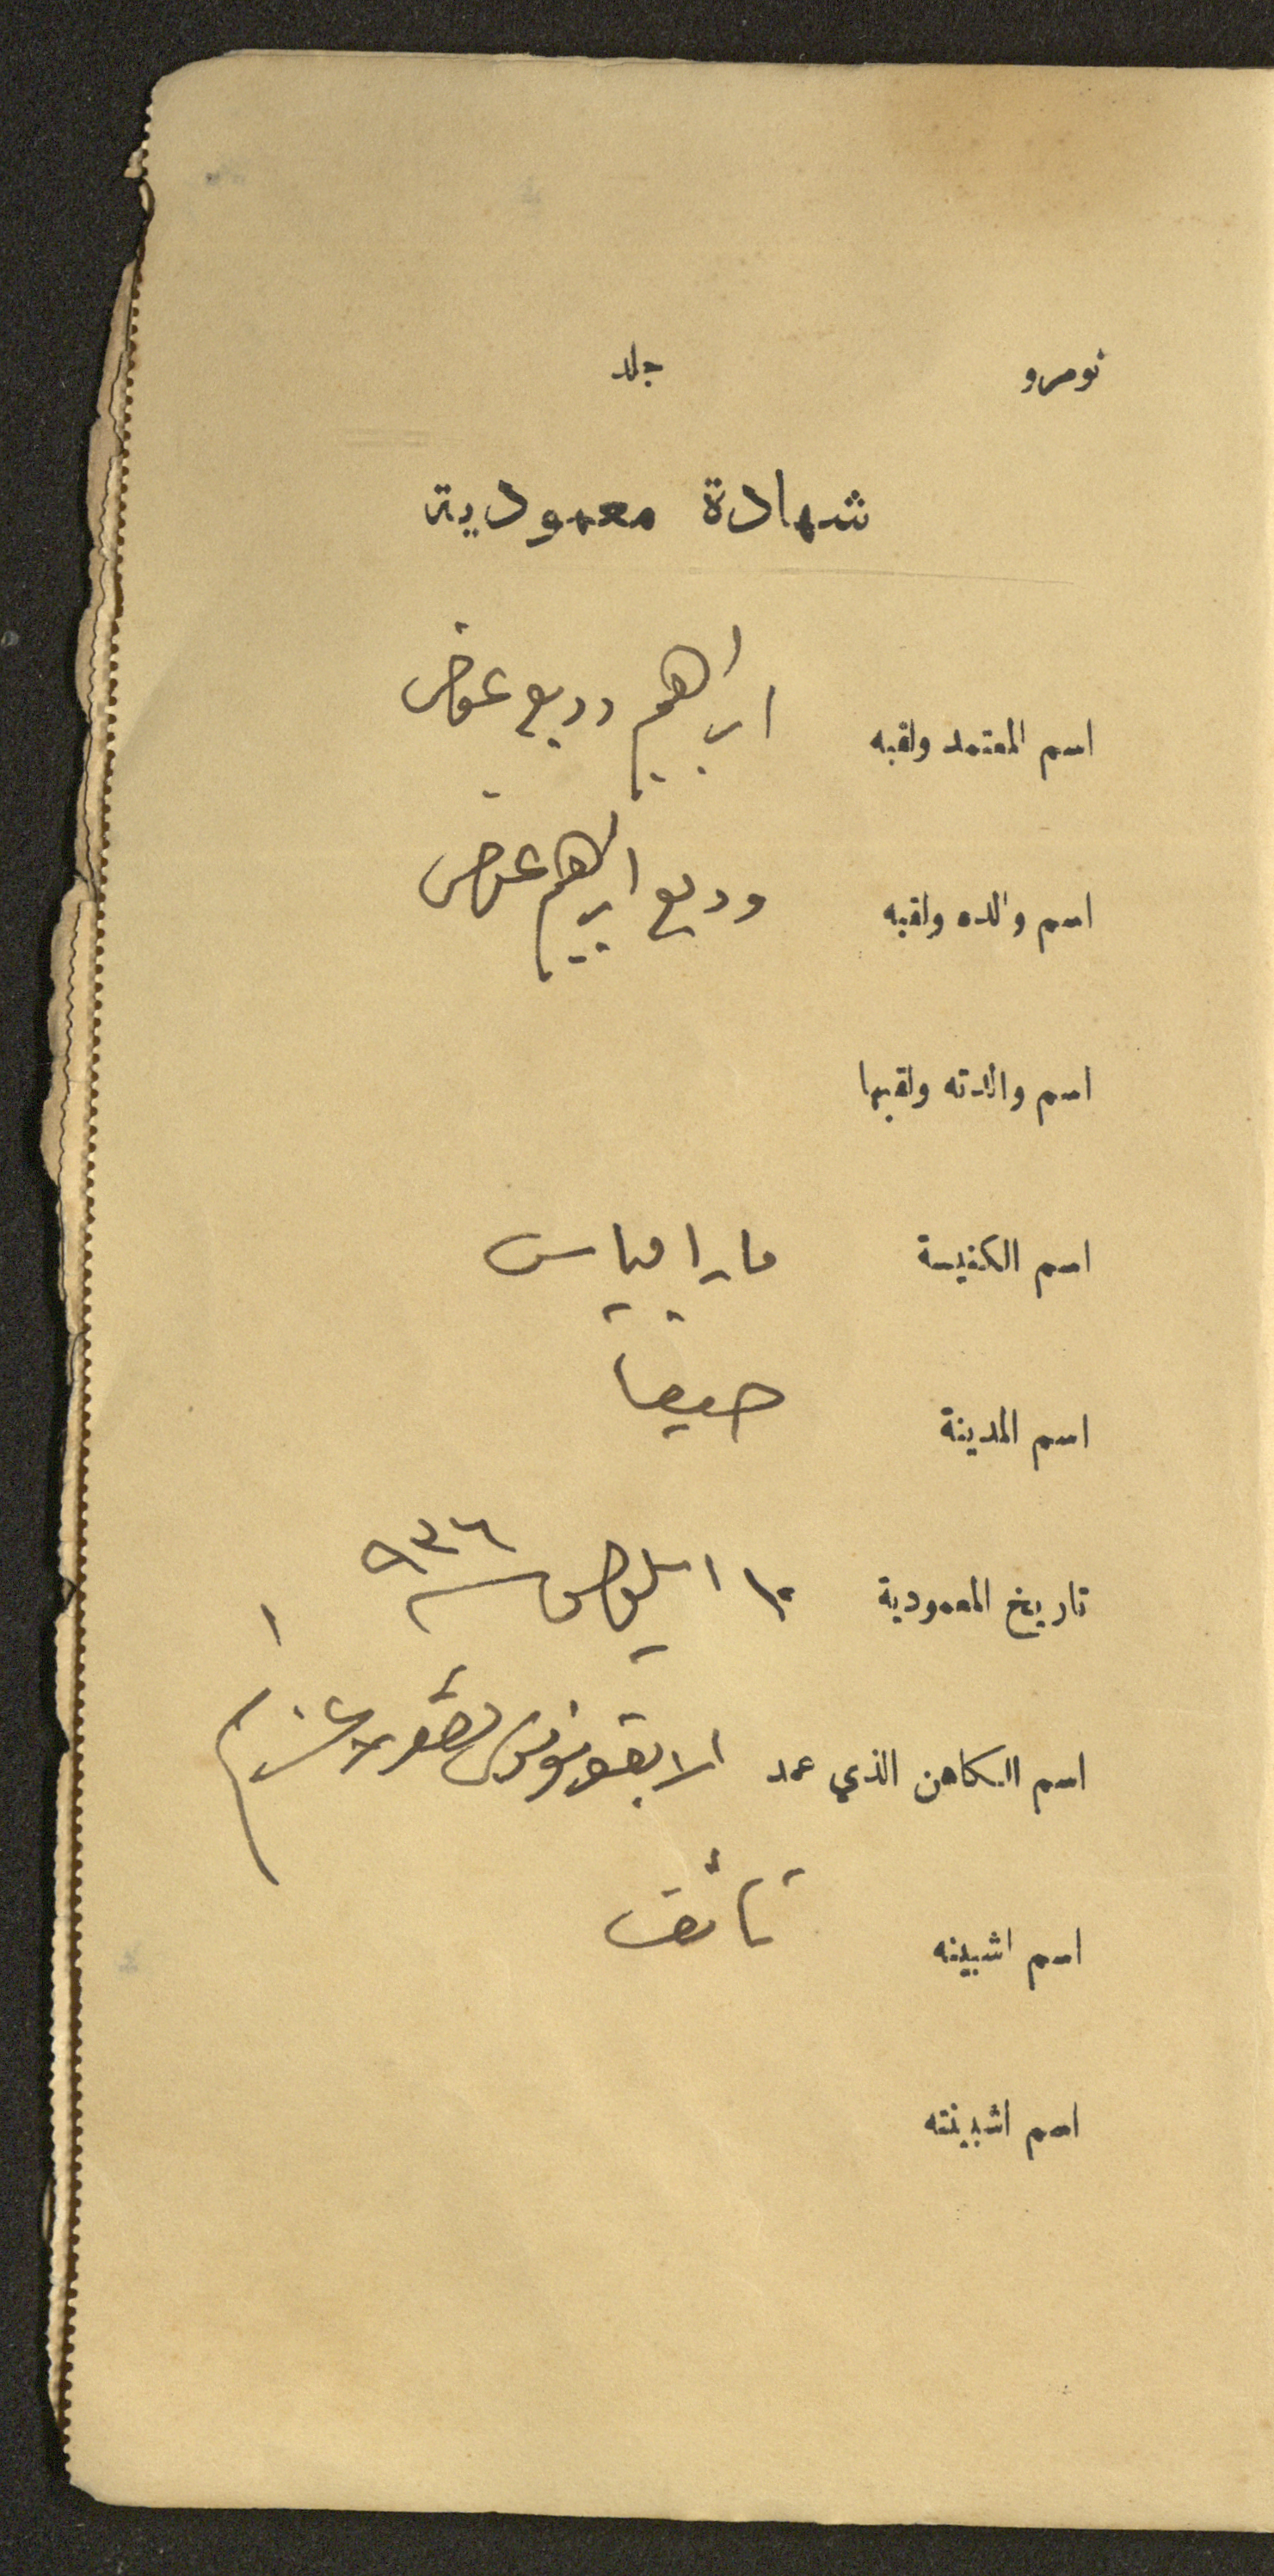 نومرو جلد
شهادة معمودية
اسم المعتمد ولقبه ابراهيم وديع عوض
اسم والده ولقبه وديع ابراهيم عوض
اسم والدته ولقبها
اسم الكنيسة مار الياس
اسم المدينة حيفا
تاريخ المعمودية ٩٣٦
اسم الكاهن الذي عمد
اسم اشبينه
اسم اشبينته